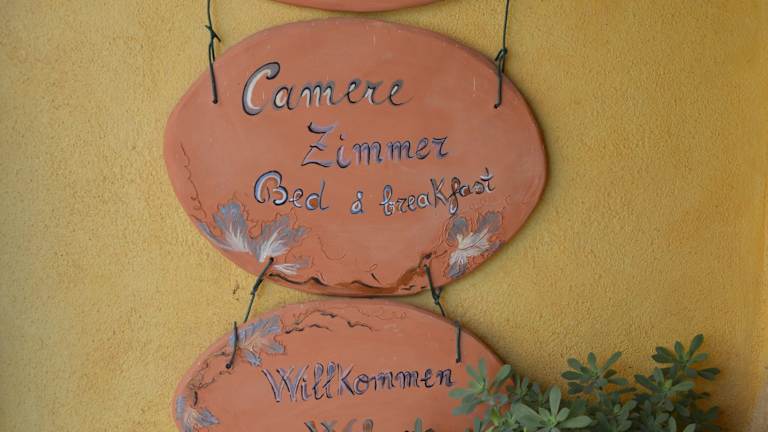 Camere
Zimmer
Bed & breakfast
Willkommen